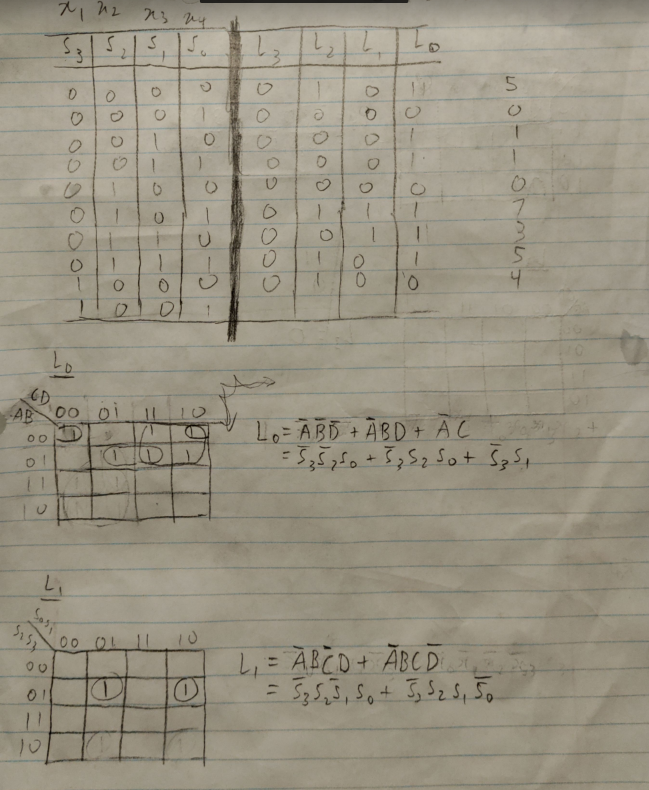 x₁ x₂ x₃ x₄
S₃ S₂ S₁ S₀ L₃ L₂ L₁ L₀
0 0 0 0 0 1 0 1 5
0 0 0 1 0 0 0 0 0
0 0 1 0 0 0 0 1 1
0 0 1 1 0 0 0 1 1
0 1 0 0 0 0 0 0 0
0 1 0 1 0 1 1 1 7
0 1 1 0 0 0 1 1 3
0 1 1 1 0 1 0 1 5
1 0 0 0 0 1 0 0 4
1 0 0 1
L₀
CD
AB 00 01 11 10
00 1 1 1
01 1 1 1
11
10
L₀ = A̅B̅D̅ + A̅BD + A̅C
= S̅₃S̅₂S₀ + S̅₃S₂S₀ + S̅₃S₁
L₁
S₀S₁
S₂S₃ 00 01 11 10
00
01 1 1
11
10
L₁ = A̅BC̅D + A̅BCD̅
= S̅₃S₂S̅₁S₀ + S̅₃S₂S₁S̅₀